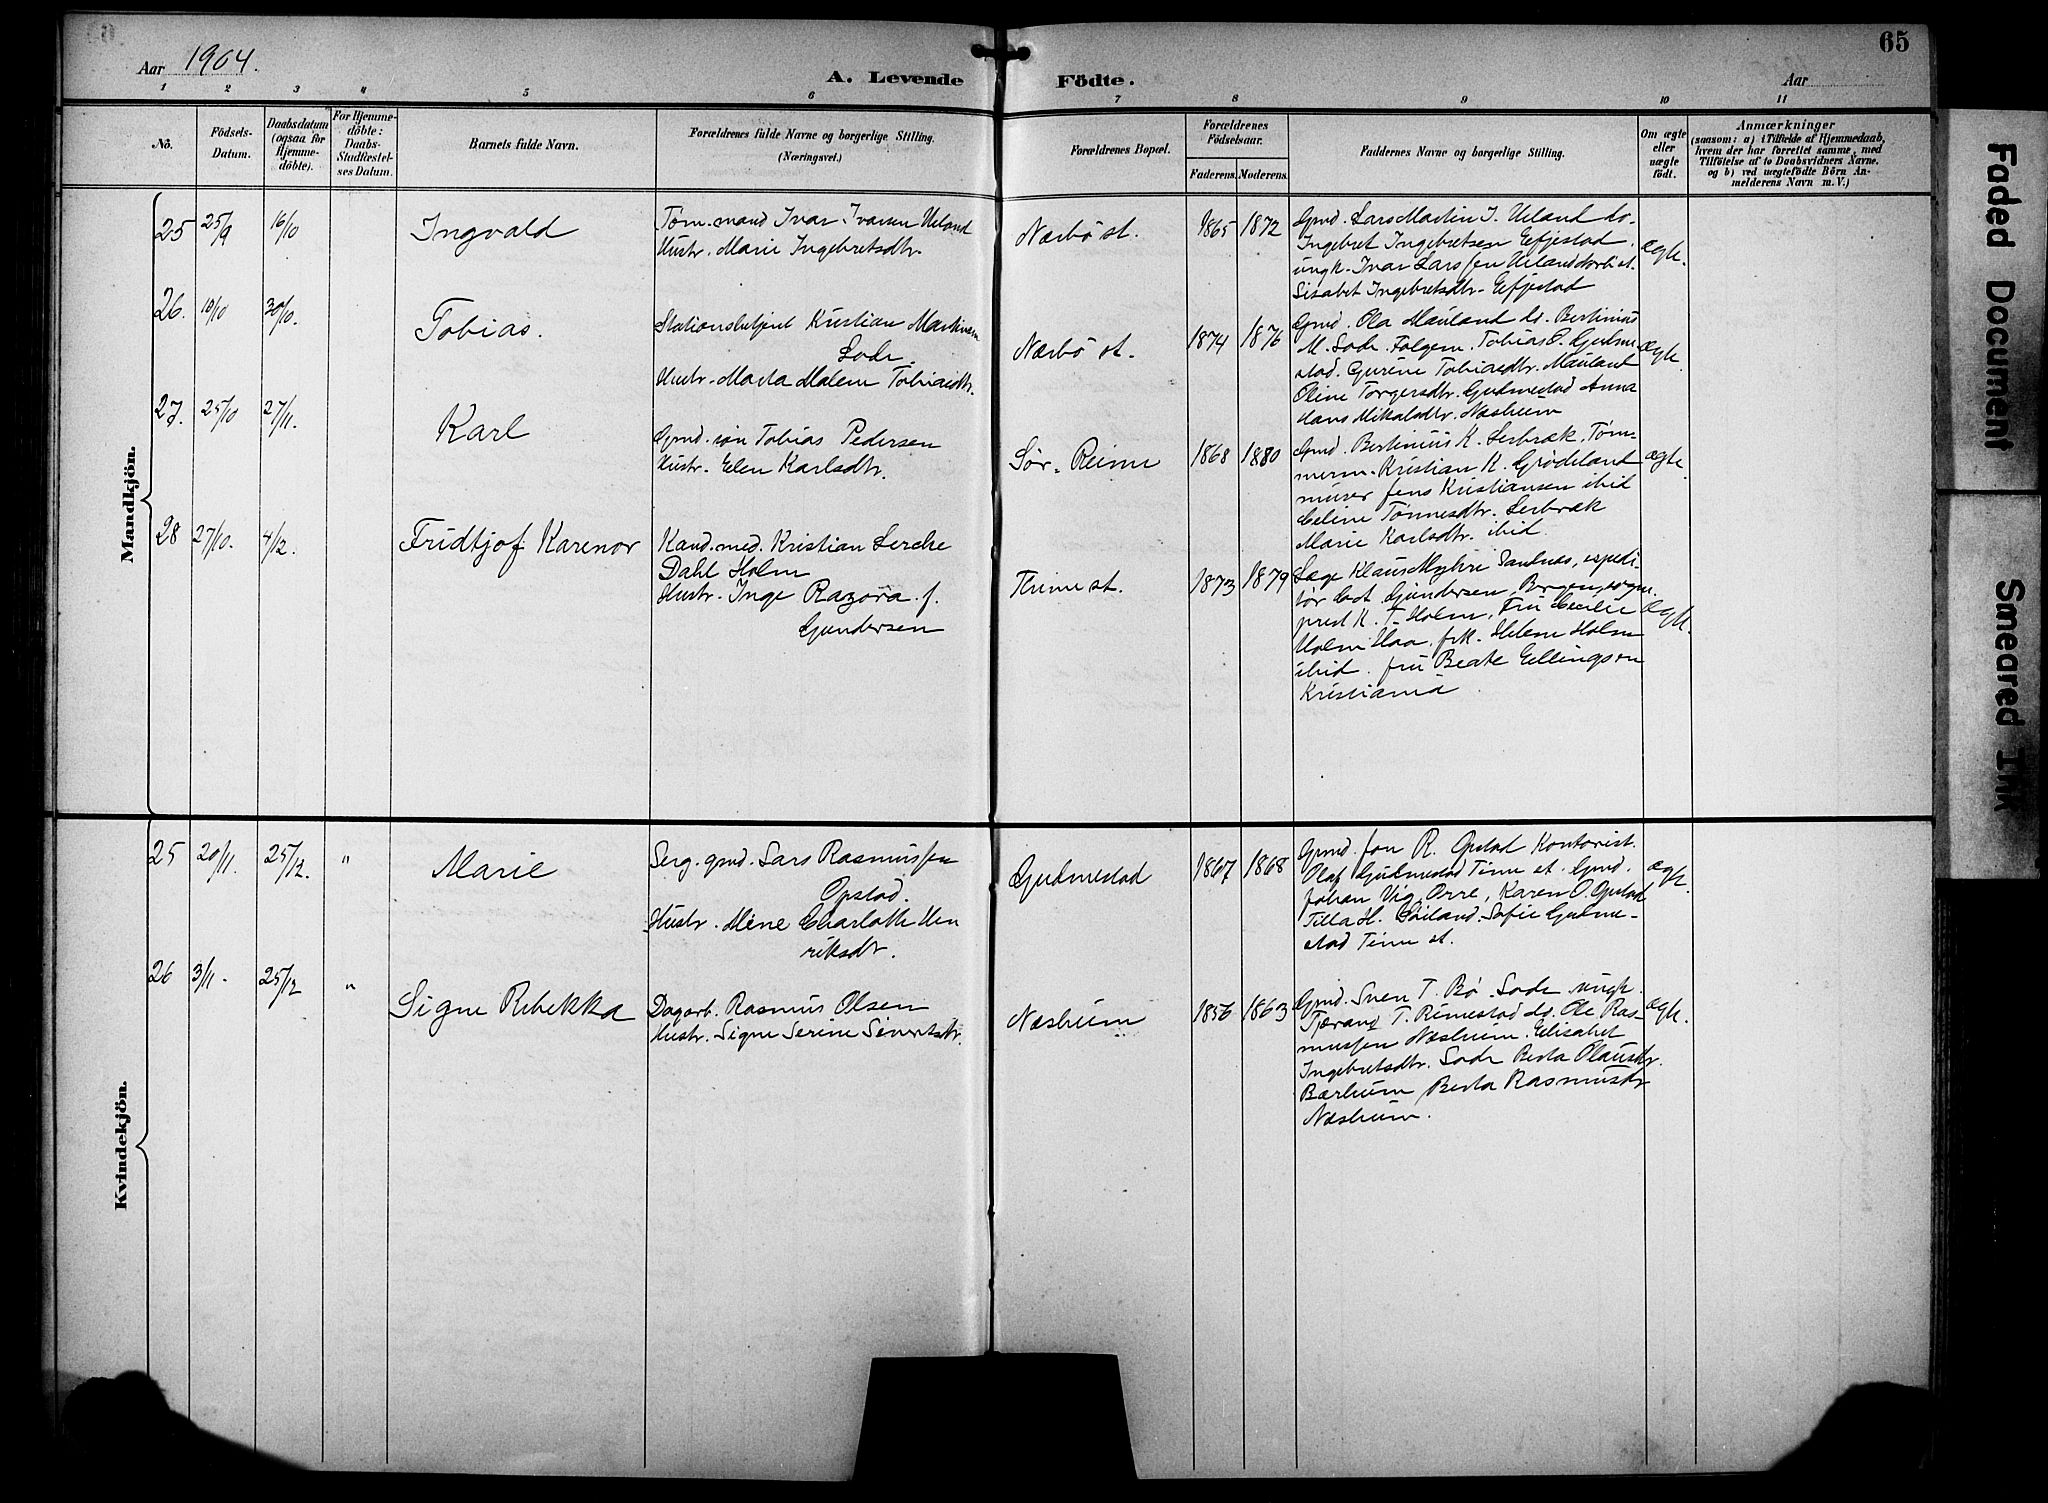 Aar 1904.
A. Levende Födte.
Aar
65
1 2 3 4 5 6 7 8 9 10 11
No.
Födsels-Datum.
Daabsdatum (ogsaa for Hjemmedöbte).
For Hjemmedöbte: Daabs-Stadfæstelses Datum.
Barnets fulde Navn.
Forældrenes fulde Navne og borgerlige Stilling.
(Næringsvei.)
Forældrenes Bopæl.
Forældrenes Födselsaar.
Faderens. Moderens.
Faddernes Navne og borgerlige Stilling.
Om ægte eller uægte födt.
Anmærkninger
(saasom: a) i Tilfælde af Hjemmedaab,
hvem der har forrettet samme, med
Tilföielse af to Daabsvidners Navne,
og b) ved uægtefödte Börn An-
melderens Navn m. V.)
Mandkjön.
25 25/9 16/10 Ingvald
Tøm.mand Ivar Ivarsen Ueland
Hustr. Marie Ingebretsdtr.
Nærbø st. 1865 1872
Gmd. Lars Martin I. Ueland do.
Ingebret Ingebretsen Eefjestad.
ungk. Ivar Larssen Ueland
Lisabet Ingebretsdtr. Eefjestad
ægte.
26. 10/10 30/10. Tobias.
Stationsbetjent Kristian Martinsen
Lode.
Hustr. Marta Malene Tobiasdtr.
Nærbö st. 1874 1876
Gmd. Ola Mauland do. Bertinius
M. Lode. Følgem. Tobias O. Gudme
stad. Gurine Tobiasdtr. Mauland
Oline Torgersdtr. Gudmestad Anna
Hans Mikalsdtr. Næsheim
ægte
27. 25/10 27/11. Karl
Gmd. søn Tobias Pedersen
Hustr. Elen Karlsdtr.
Sør-Reime 1868 1880
Gmd. Bertinius K. Serbræk. Tøm-
merm. Kristian K. Grødeland
murer Jens Kristiansen ibid
Celine Tønnesdtr. Serbræk
Marie Karlsdtr. ibid.
ægte.
28 27/10. 4/12. Fridtjof Karenor
Kand. med. Kristian Lerche
Dahl Holm
Hustr. Inge Razora f.
Gundersen
Thime st. 1873 1879
Læge Klaus Myhre Sandnes, expedi-
tør Gundersen, Bergen, sogne
prest K. T. Holm, Fru Cecilie
Holm Haa. frk. Helene Holm
ibid. fru Beate Ellingsen
Kristiania
ægte.
Kvindekjön.
25 20/11. 25/12. " Marie
Serg. gmd. Lars Rasmussen
Opstad.
Hustr. Mene Charlotte Hen
riksdtr.
Gudmestad 1867 1868
Gmd. Jon R. Opstad Kontorist.
Olaf Gudmestad Time st. Gmd.
Johan Vig, Orre, Karen O. Opstad
Tilla H. Søiland. Sofie Gudme-
stad Time st.
ægte.
26 3/11. 25/12 " Signe Rebekka
Dagarb. Rasmus Olsen
Hustr. Signe Serine Sivertsdtr.
Næsheim 1856 1863
Gmd. Sven T. Bø. Lode ungk.
Tjærand T. Rimestad do. Ole Ras-
mussen Næsheim. Elisabet
Ingebretsdtr. Lode Berta Olausdtr.
Bærheim Berta Rasmusdtr
Næsheim.
ægte.
Faded Document
Smeared Ink